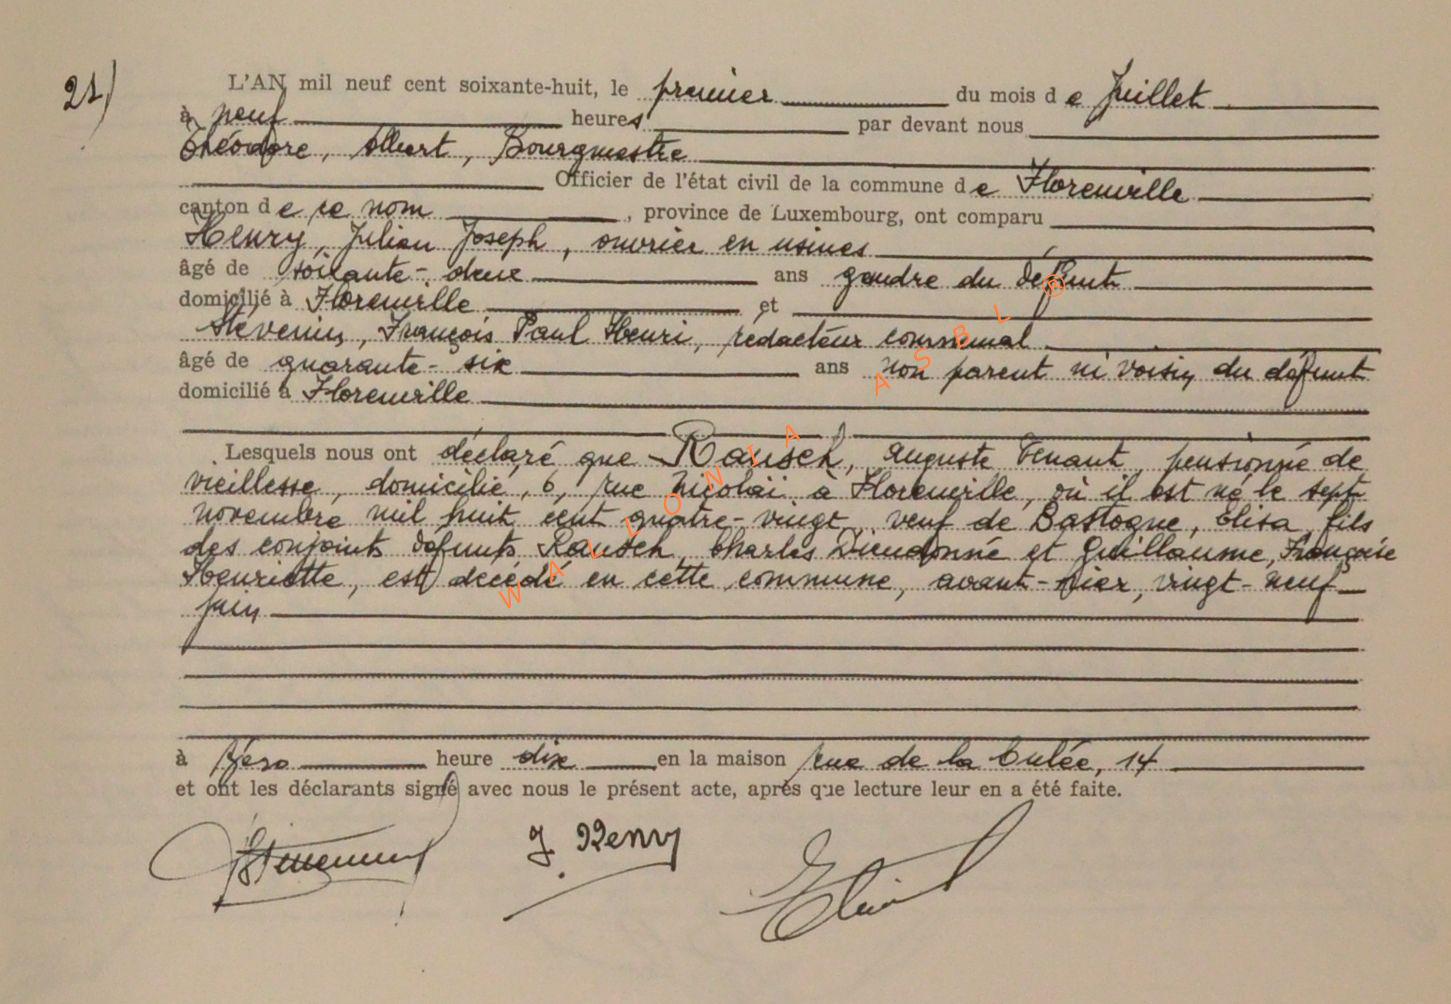 21)
L'AN mil neuf cent soixante-huit, le premier du mois de Juillet
à neuf heures par devant nous
Théodore, Albert, Bourgmestre
Officier de l'état civil de la commune de Florenville
canton de ce nom, province de Luxembourg, ont comparu
Henry, Julien Joseph, ouvrier en usines
âgé de soixante-deux ans gendre du défunt
domicilié à Florenville et
Stévenin, François Paul Henri, rédacteur communal
âgé de quarante-six ans non parent ni voisin du défunt
domicilié à Florenville
Lesquels nous ont déclaré que Rausch, Auguste Venant, pensionné de
vieillesse, domicilié, 6, rue Nicolaï à Florenville, où il est né le sept
novembre mil huit cent quatre-vingt, veuf de Bastogne, Elisa, fils
des conjoints défunts Rausch, Charles Dieudonné et Guillaume, Françoise
Henriette, est décédé en cette commune, avant-hier, vingt-neuf
juin
à zéro heure dix en la maison rue de la Culée, 14
et ont les déclarants signé avec nous le présent acte, après que lecture leur en a été faite.
J. Henry
WALLONIA ASBL ©